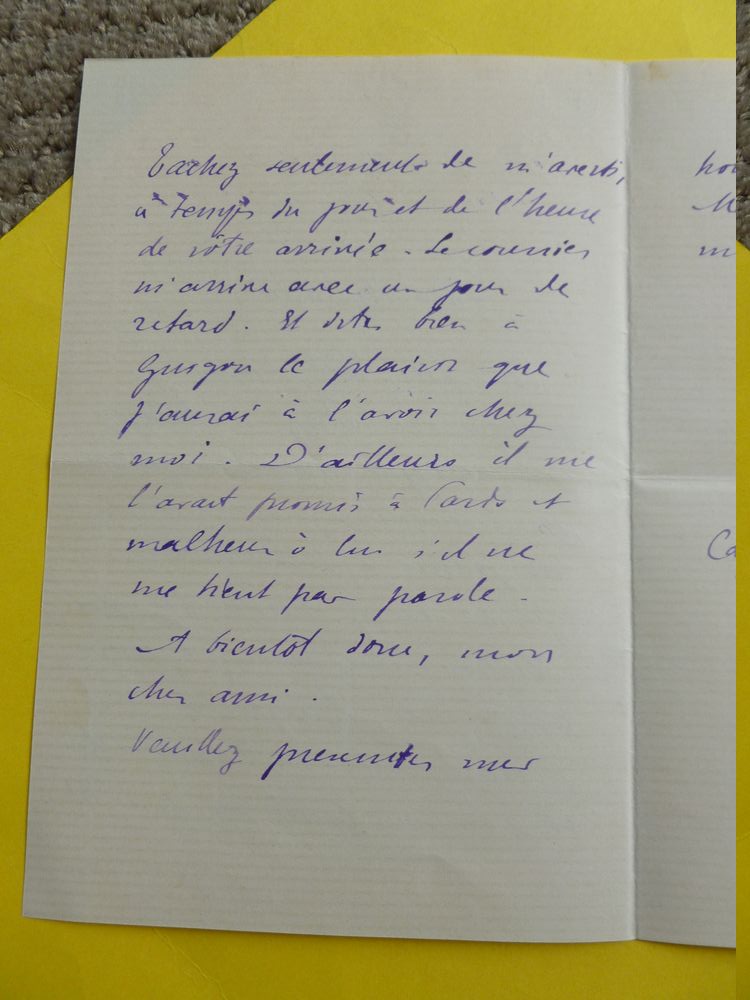 Tachez seulement de m'avertir
à temps du jour et de l'heure
de votre arrivée. Le courrier
m'arrive avec un jour de
retard. Et dites bien à
Guigou le plaisir que
j'aurai à l'avoir chez
moi. D'ailleurs il me
l'avait promis à Paris et
malheur à lui s'il ne
me tient pas parole.
A bientôt donc, mon
cher ami.
Veuillez presenter mes
M
m
Ca